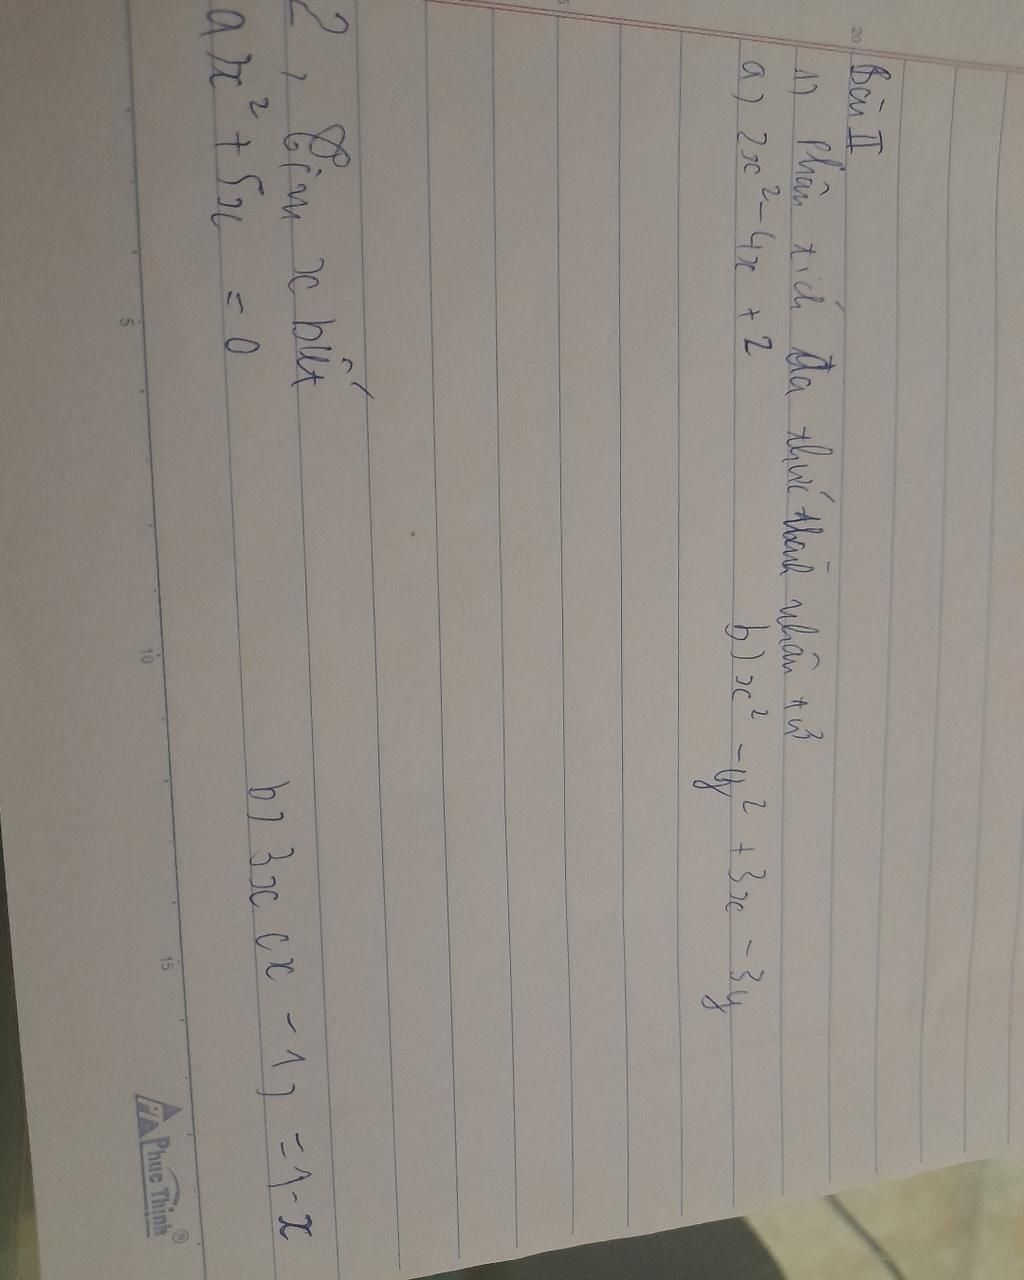 Bài II
1) Phân tích đa thức thành nhân tử
a) 2x² - 4x + 2 b) x² - y² + 3x - 3y
2, Tìm x biết
a) x² + 5x = 0 b) 3x(x - 1) = 1 - x
5 10 15 20
Phuc Thinh®